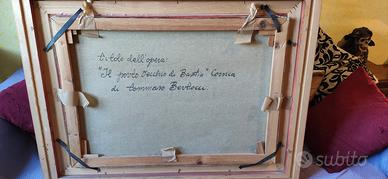 titolo dell'opera:
"Il porto Vecchio di Bastia" Corsica
di Tommaso Bertocci
subito